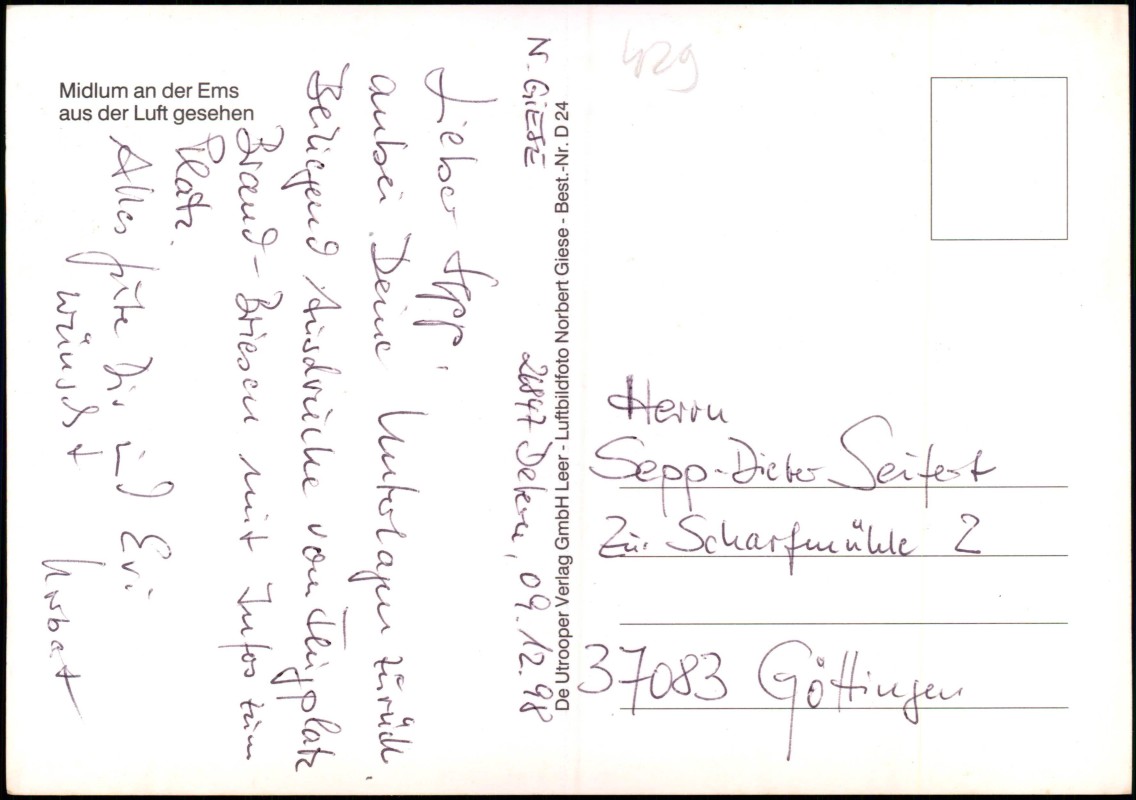 Midlum an der Ems
aus der Luft gesehen
N. GIESE
26847 Detern, 09.12.98
Lieber Sepp,
anbei Deine Unterlagen zurück.
Beiliegend Ausdrucke vom Flugplatz
Brand-Briesen mit Infos zum
Platz.
Alles gute Dir und Evi
wünscht
Norbert
De Utrooper Verlag GmbH Leer - Luftbildfoto Norbert Giese - Best.-Nr. D 24
429
Herrn
Sepp-Dieter Seifert
Zur Scharfmühle 2
37083 Göttingen